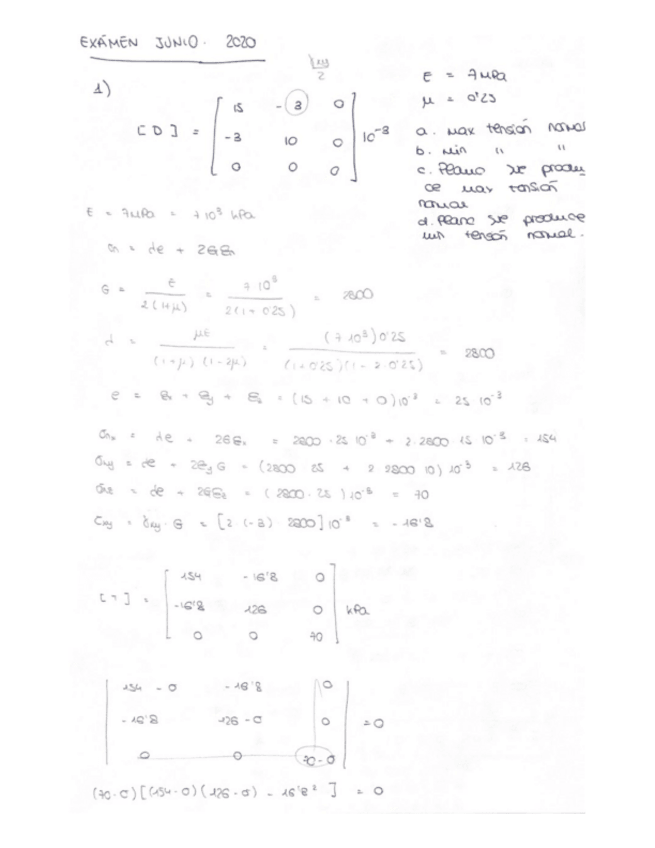 EXÁMEN JUNIO. 2020
γxy/2
1)
[D] = [ 15 -3 0
-3 10 0
0 0 0 ] 10⁻³
E = 7 MPa
μ = 0'25
a. Max tensión normal
b. Min " "
c. Plano se produ
ce max tensión
normal
d. Plano se produce
min tensón normal.
E = 7 MPa = 7 10³ kPa
σn = λe + 2Gεn
G = E / 2(1+μ) = 7 10³ / 2(1+0'25) = 2800
λ = μE / (1+μ)(1-2μ) = (7 10³) 0'25 / (1+0'25)(1-2·0'25) = 2800
e = εx + εy + εz = (15 + 10 + 0) 10⁻³ = 25 10⁻³
σnx = λe + 2Gεx = 2800 · 25 10⁻³ + 2·2800 15 10⁻³ = 154
σny = λe + 2εy G = (2800 25 + 2 2800 10) 10⁻³ = 126
σnz = λe + 2Gεz = (2800 · 25) 10⁻³ = 70
τxy = γxy · G = [2 (-3) 2800] 10⁻³ = -16'8
[T] = [ 154 -16'8 0
-16'8 126 0
0 0 70 ] kPa
| 154 - σ -16'8 0 |
| -16'8 126 - σ 0 | = 0
| 0 0 70 - σ |
(70-σ) [(154-σ)(126-σ) - 16'8² ] = 0